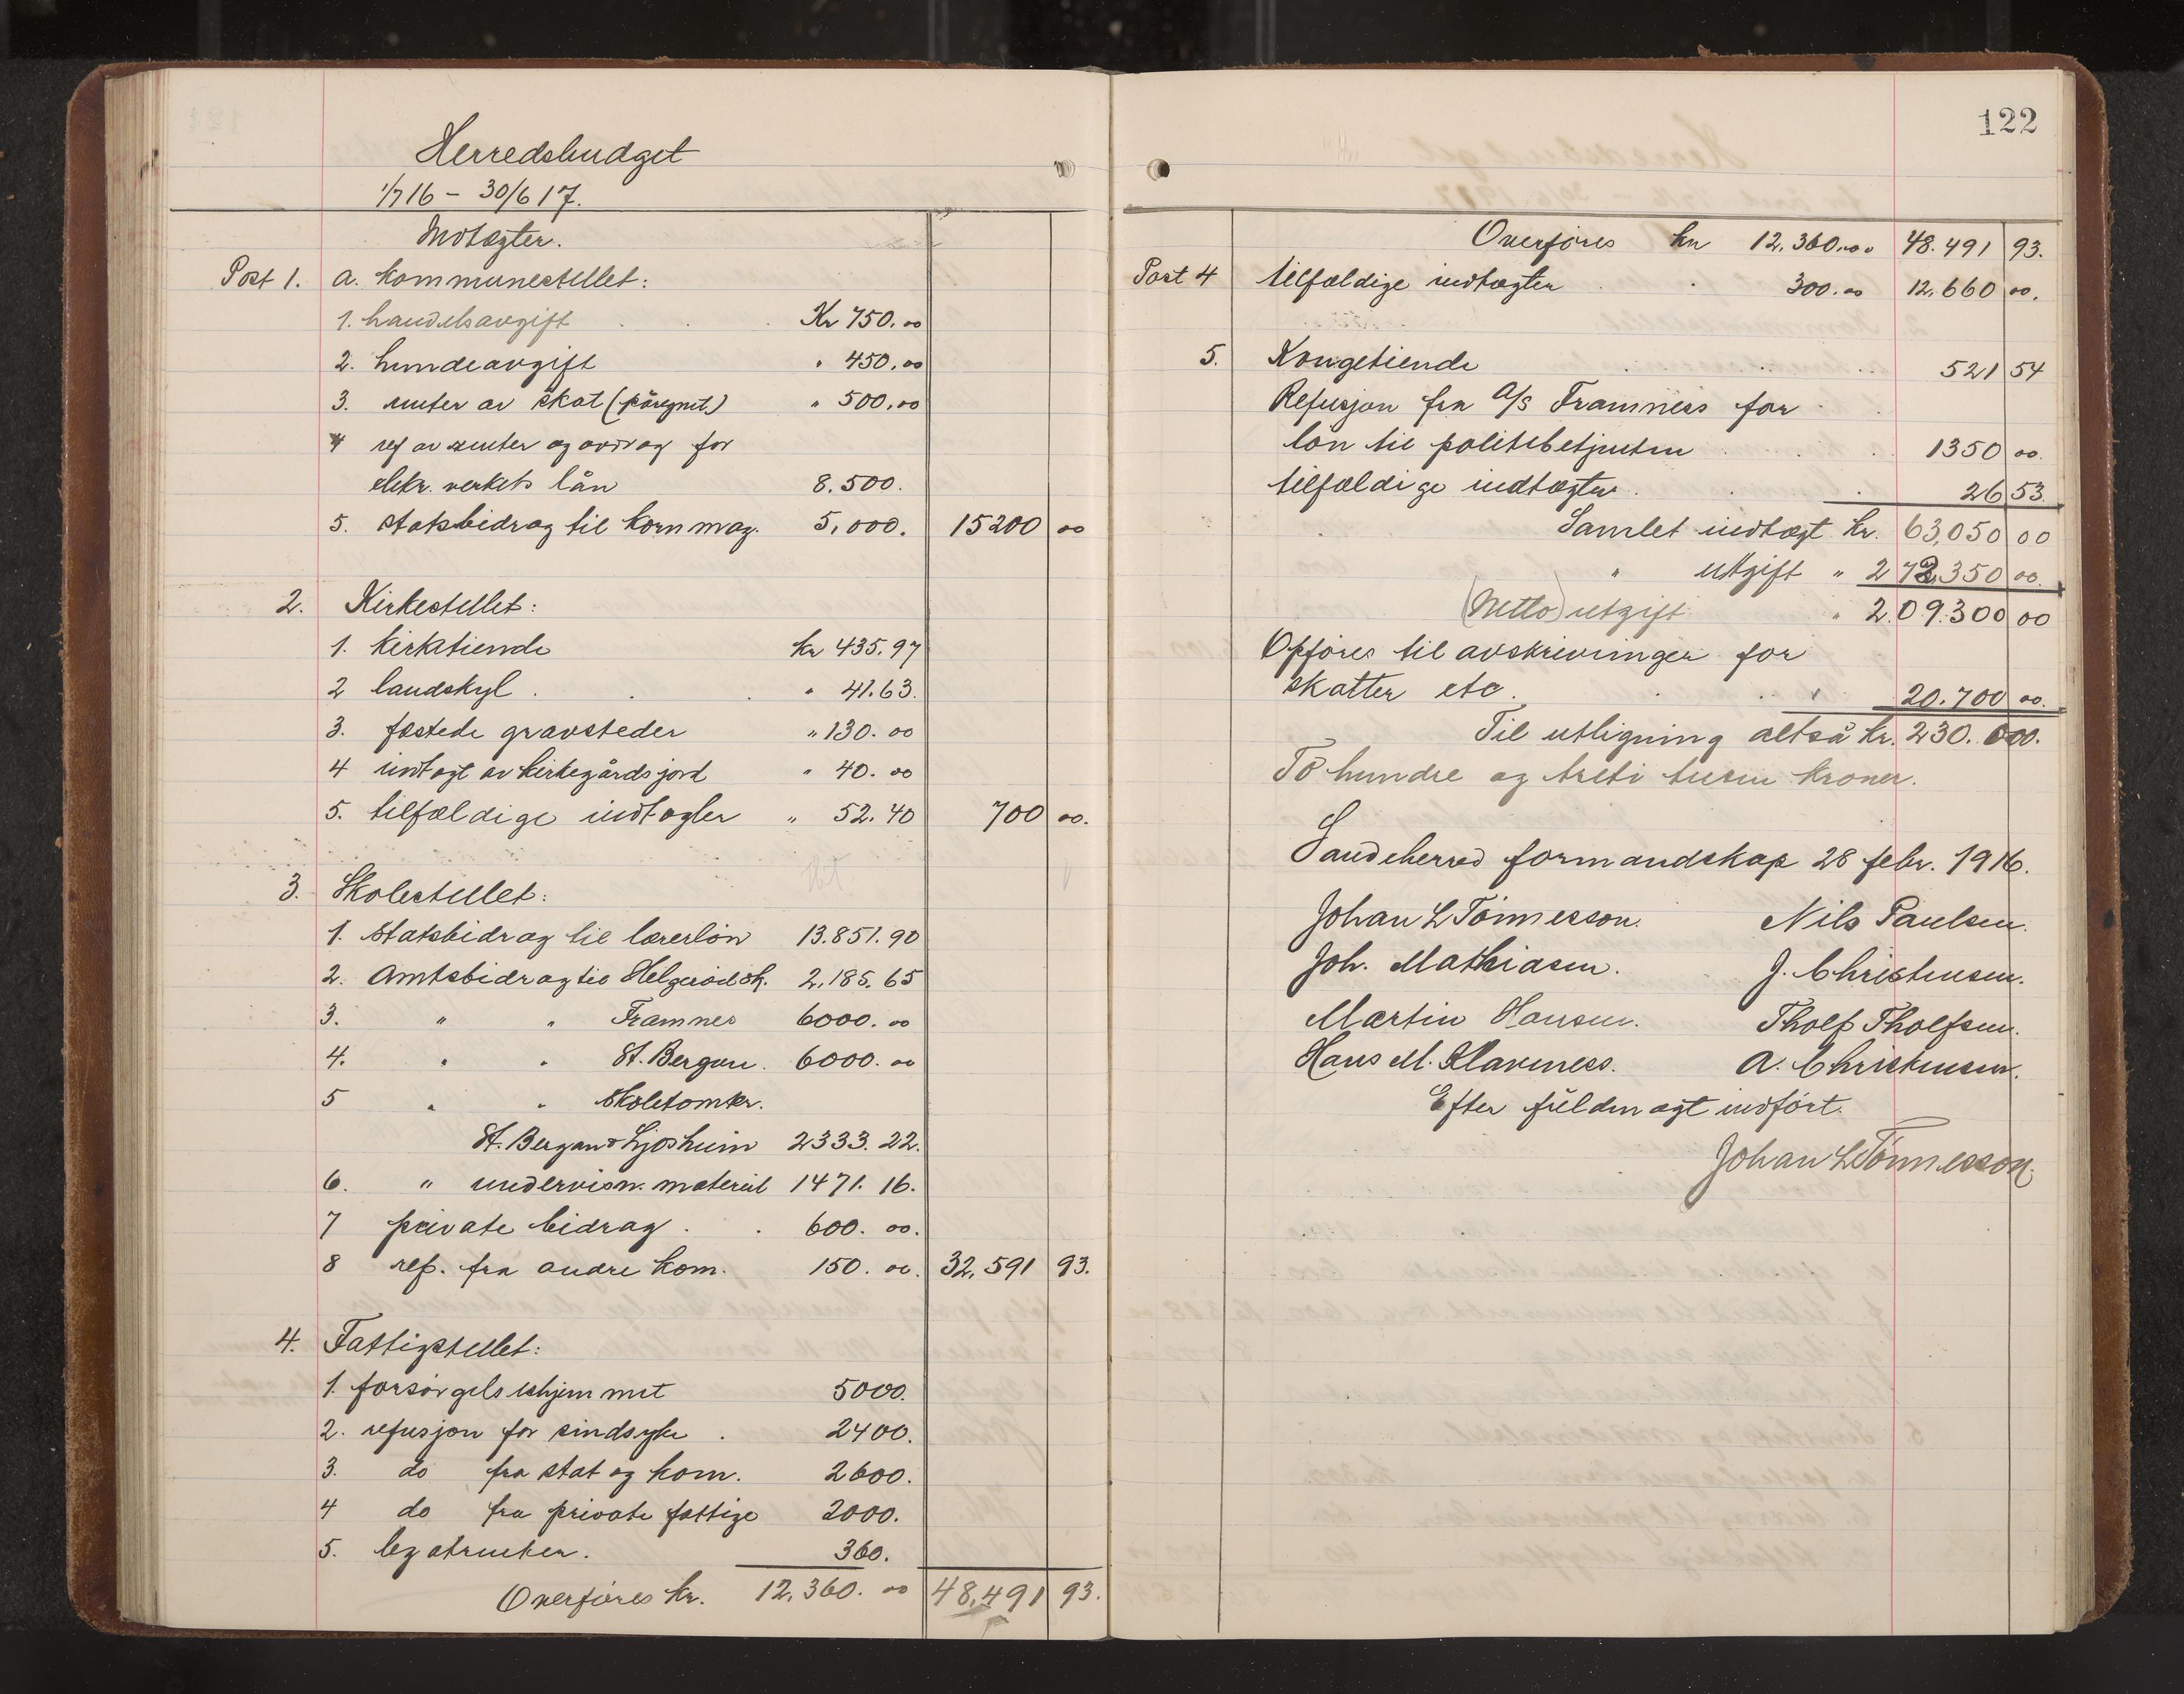 Herredsbudget
1/7 16 – 30/6 17.
Indtægter.
Post 1. a. kommunestellet:
1. handelsavgift Kr 750.00
2. hundeavgift " 450.00
3. renter av skat (påregnet) " 500.00
4 ref av renter og avdrag for
elektr. verkets lån 8.500.
5. statsbidrag til kornmag. 5,000. 15200 00
2. Kirkestellet:
1. kirketiende kr 435.97
2 landskyl . " 41.63.
3. fæstede gravsteder " 130.00
4 indtægt av kirkegårdsjord " 40.00
5. tilfældige indtægter " 52.40 700 00.
3. Skolestellet:
1. Statsbidrag til lærerløn 13.851.90
2. Amtsbidrag til Helgerød sk. 2,185.65
3. " " Framnes 6000.00
4. " " St. Bergan. 6000.00
5 " " Skoletomter.
St. Bergan & Ljosheim 2333.22.
6. " undervisn. materiel 1471.16.
7 private bidrag . . 600.00.
8 ref. fra andre kom. 150.00. 32,591 93.
4. Fattigstellet:
1. forsørgelseshjemmet 5000.
2. refusjon for sindsyke . 2400.
3. do fra stat og kom. 2600.
4 do fra private fattige 2000.
5. legatrenter. 360.
Overføres kr. 12,360.00 48,491 93.
122
Overføres kr 12,360.00 48.491 93.
Post 4 tilfældige indtægter 300.00 12.660 00.
5. Kongetiende 521 54
Refusjon fra A/S Framnæs for
løn til politibetjenten 1350 00.
tilfældige indtægter. 26 53.
Samlet indtægt kr. 63,050 00
" utgift " 272,350 00.
(Netto) utgift " 209.300 00
Opføres til avskrivninger for
skatter etc. 20.700 00.
Til utligning altså kr. 230.000.
To hundre og treti tusen kroner.
Sandeherred formandskap 28 febr. 1916.
Johan L Tønnesson. Nils Paulsen.
Joh. Mathiasen. J. Christensen.
Martin Hansen. Tholf Tholfsen.
Hans M. Klavness. A. Christensen.
Efter fuldmagt indført.
Johan L Tønnesson.